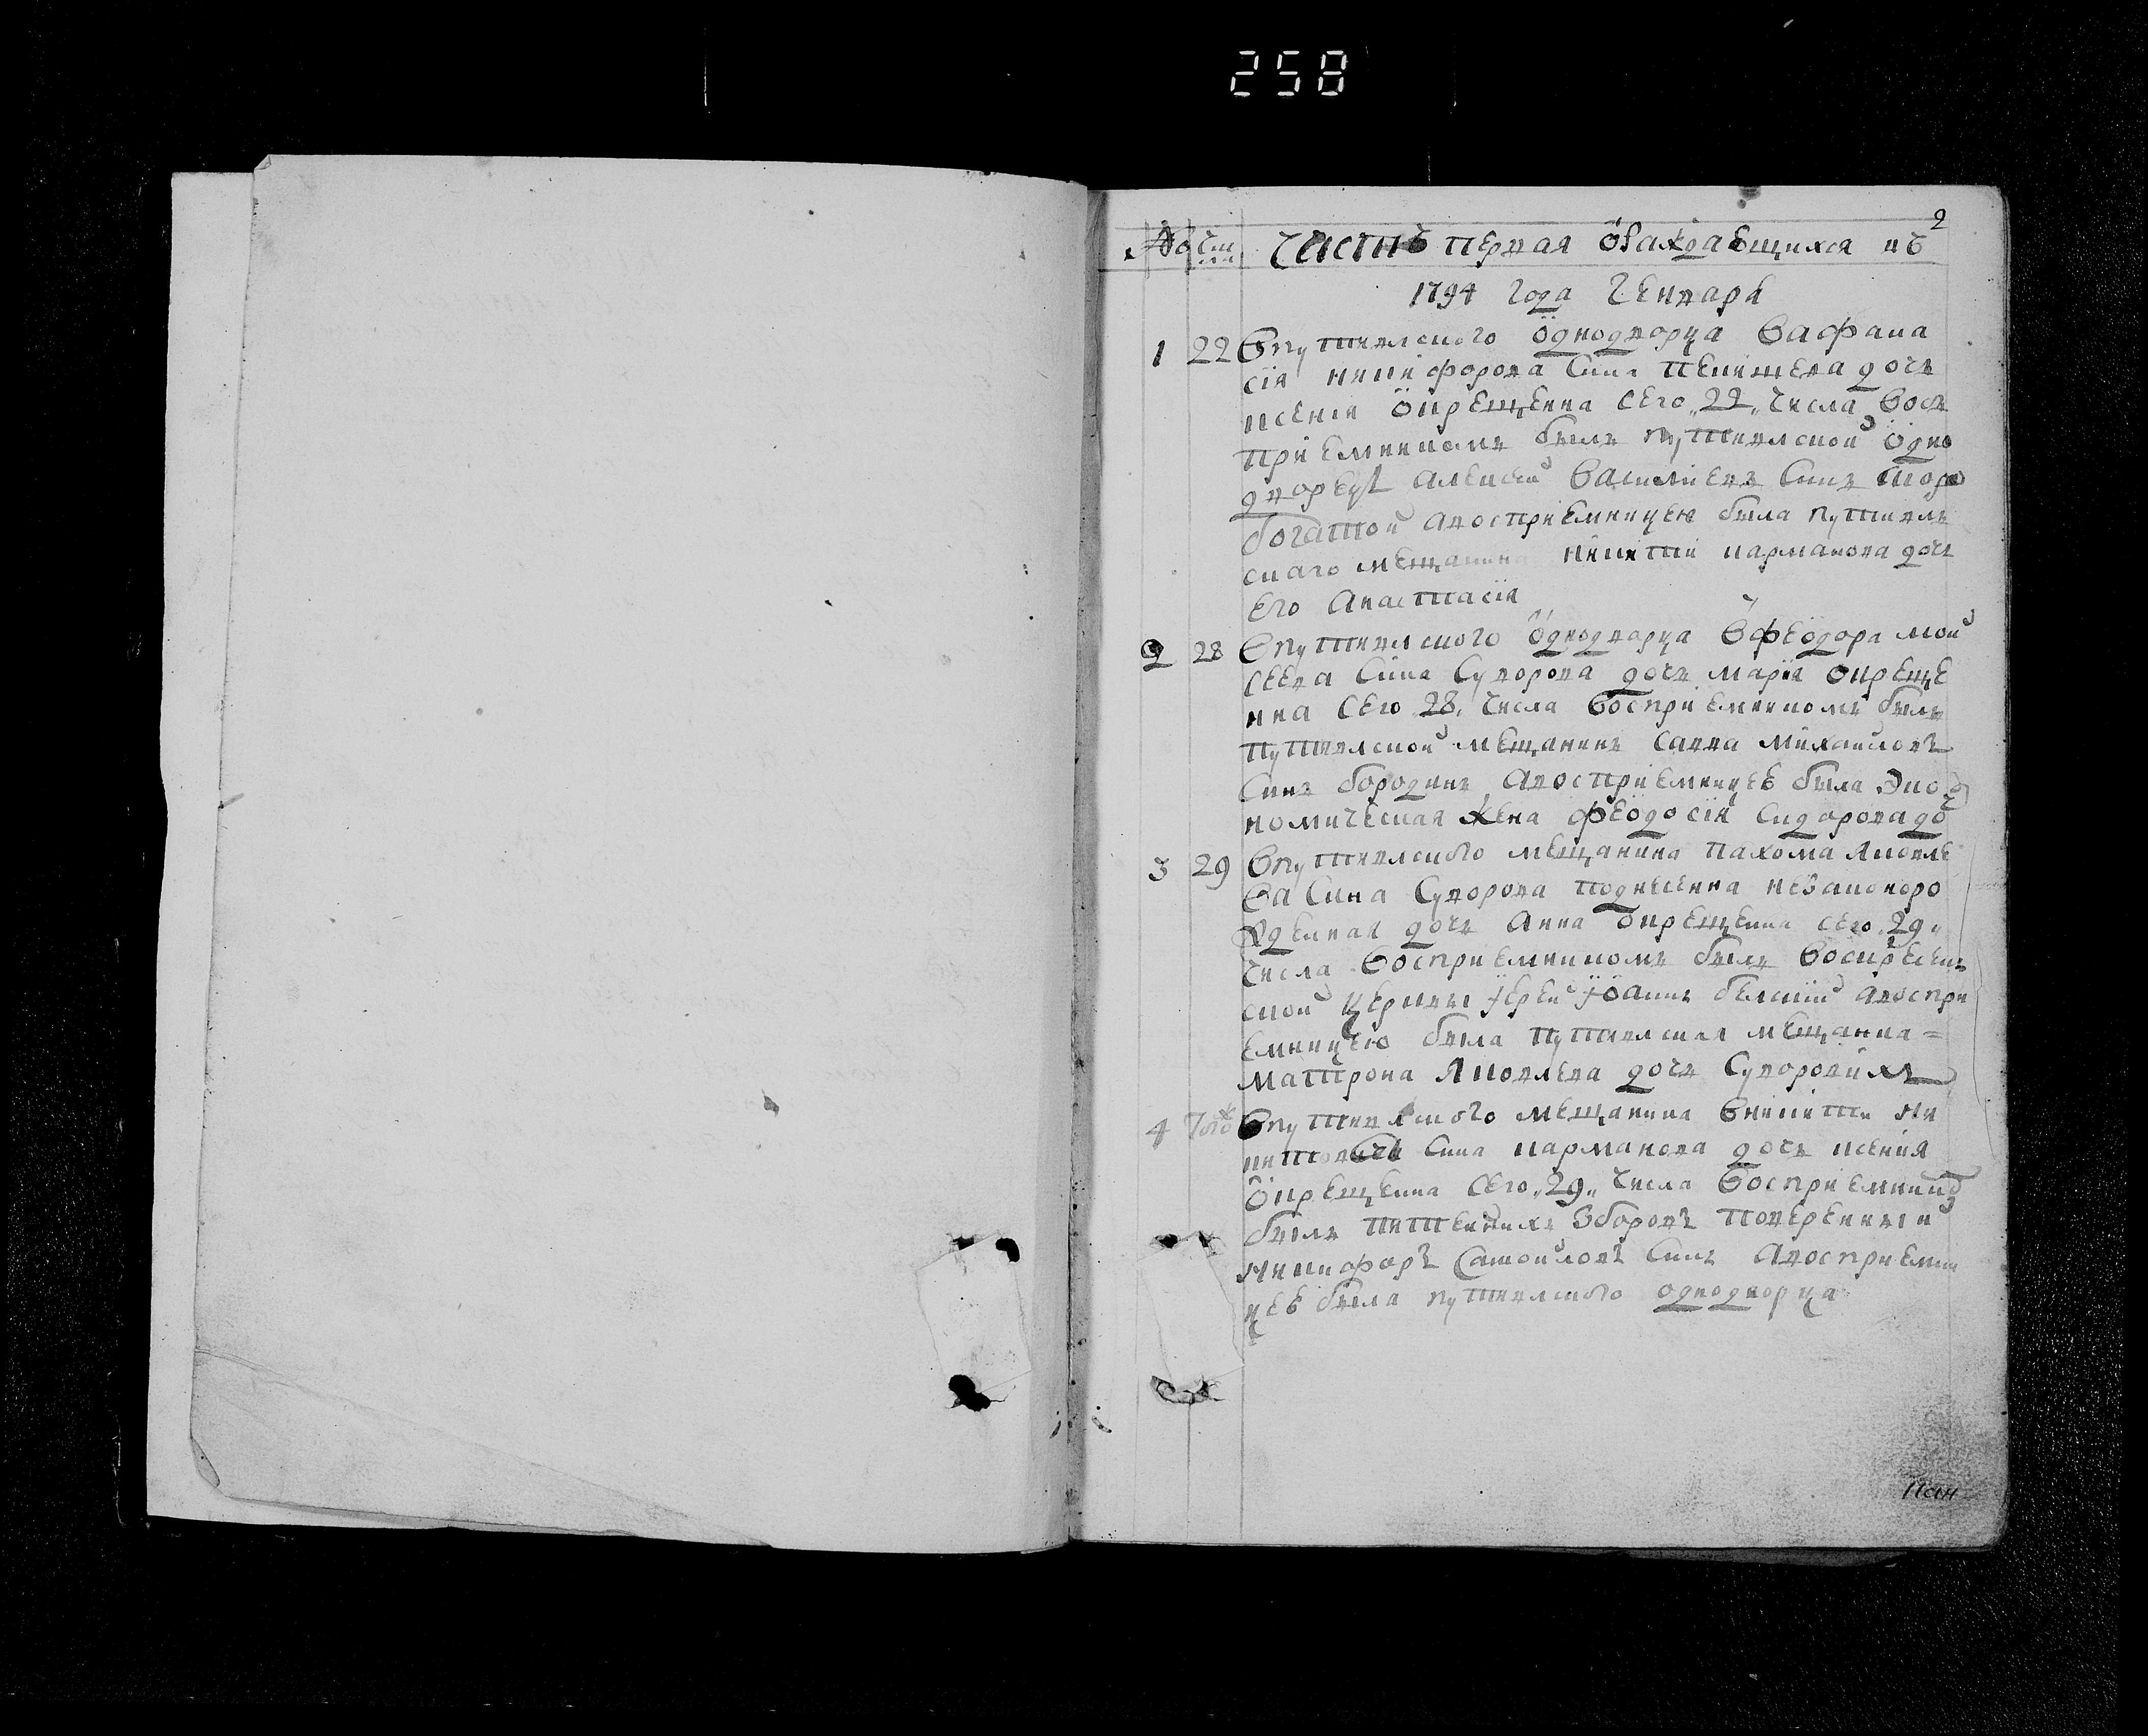 258
2
№ Чис
ла
Часть первая ораждаещихся въ
1794 года Генваря
1 22 Впутивлского однодворца Вафана
сія никифорова сина пенишева дочь
ксенія окрещенна сего 22 числа вос
приемникомъ билъ путивлской одно
дворецъ алексей василиевъ синъ скоро
богатой авосприемницею била путивль
скаго мещанина никити карманова дочь
его анастасія
2 28 Впутивлского однодворца Вфеодора мои
сеева сина суворова дочь марія окреще
нна сего 28 числа восприемникомъ билъ
путивлской мещанинъ савва михаиловъ
синъ бородинъ авосприемницеѣ била эко
номическая жена феодосія сидорова до
3 29 Впутивлского мещанина пахома яковле
ва сина суворова поднесенна незаконоро
жденная дочь анна окрещенна сего 29
числа восприемникомъ билъ воскресен
ской церкви іерей іоаннъ белскій авоспри
емницею била путивлская мещанка
матрона яковлева дочь суворовихъ
4 Того Впутивлского мещанина Вникити ни
китовича сина карманова дочь ксенія
окрещенна сего 29 числа восприемникъ
билъ питейнихъ зборовъ повереннии
никифоръ самоиловъ синъ авосприемни
цеѣ била путивлского однодворца